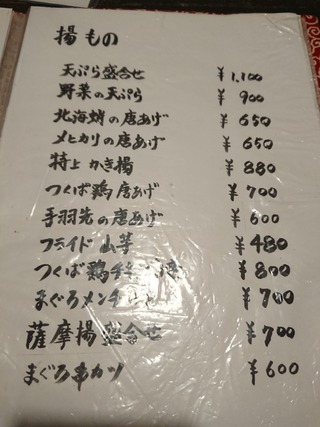 揚もの
天ぷら盛合せ ¥1,100
野菜の天ぷら ¥900
北海蛸の唐あげ ¥650
メヒカリの唐あげ ¥650
特上かき揚 ¥880
つくば鶏唐あげ ¥700
手羽先の唐あげ ¥600
フライド山芋 ¥480
つくば鶏チキン ¥800
まぐろメンチ ¥700
薩摩揚盛合せ ¥700
まぐろ串カツ ¥600